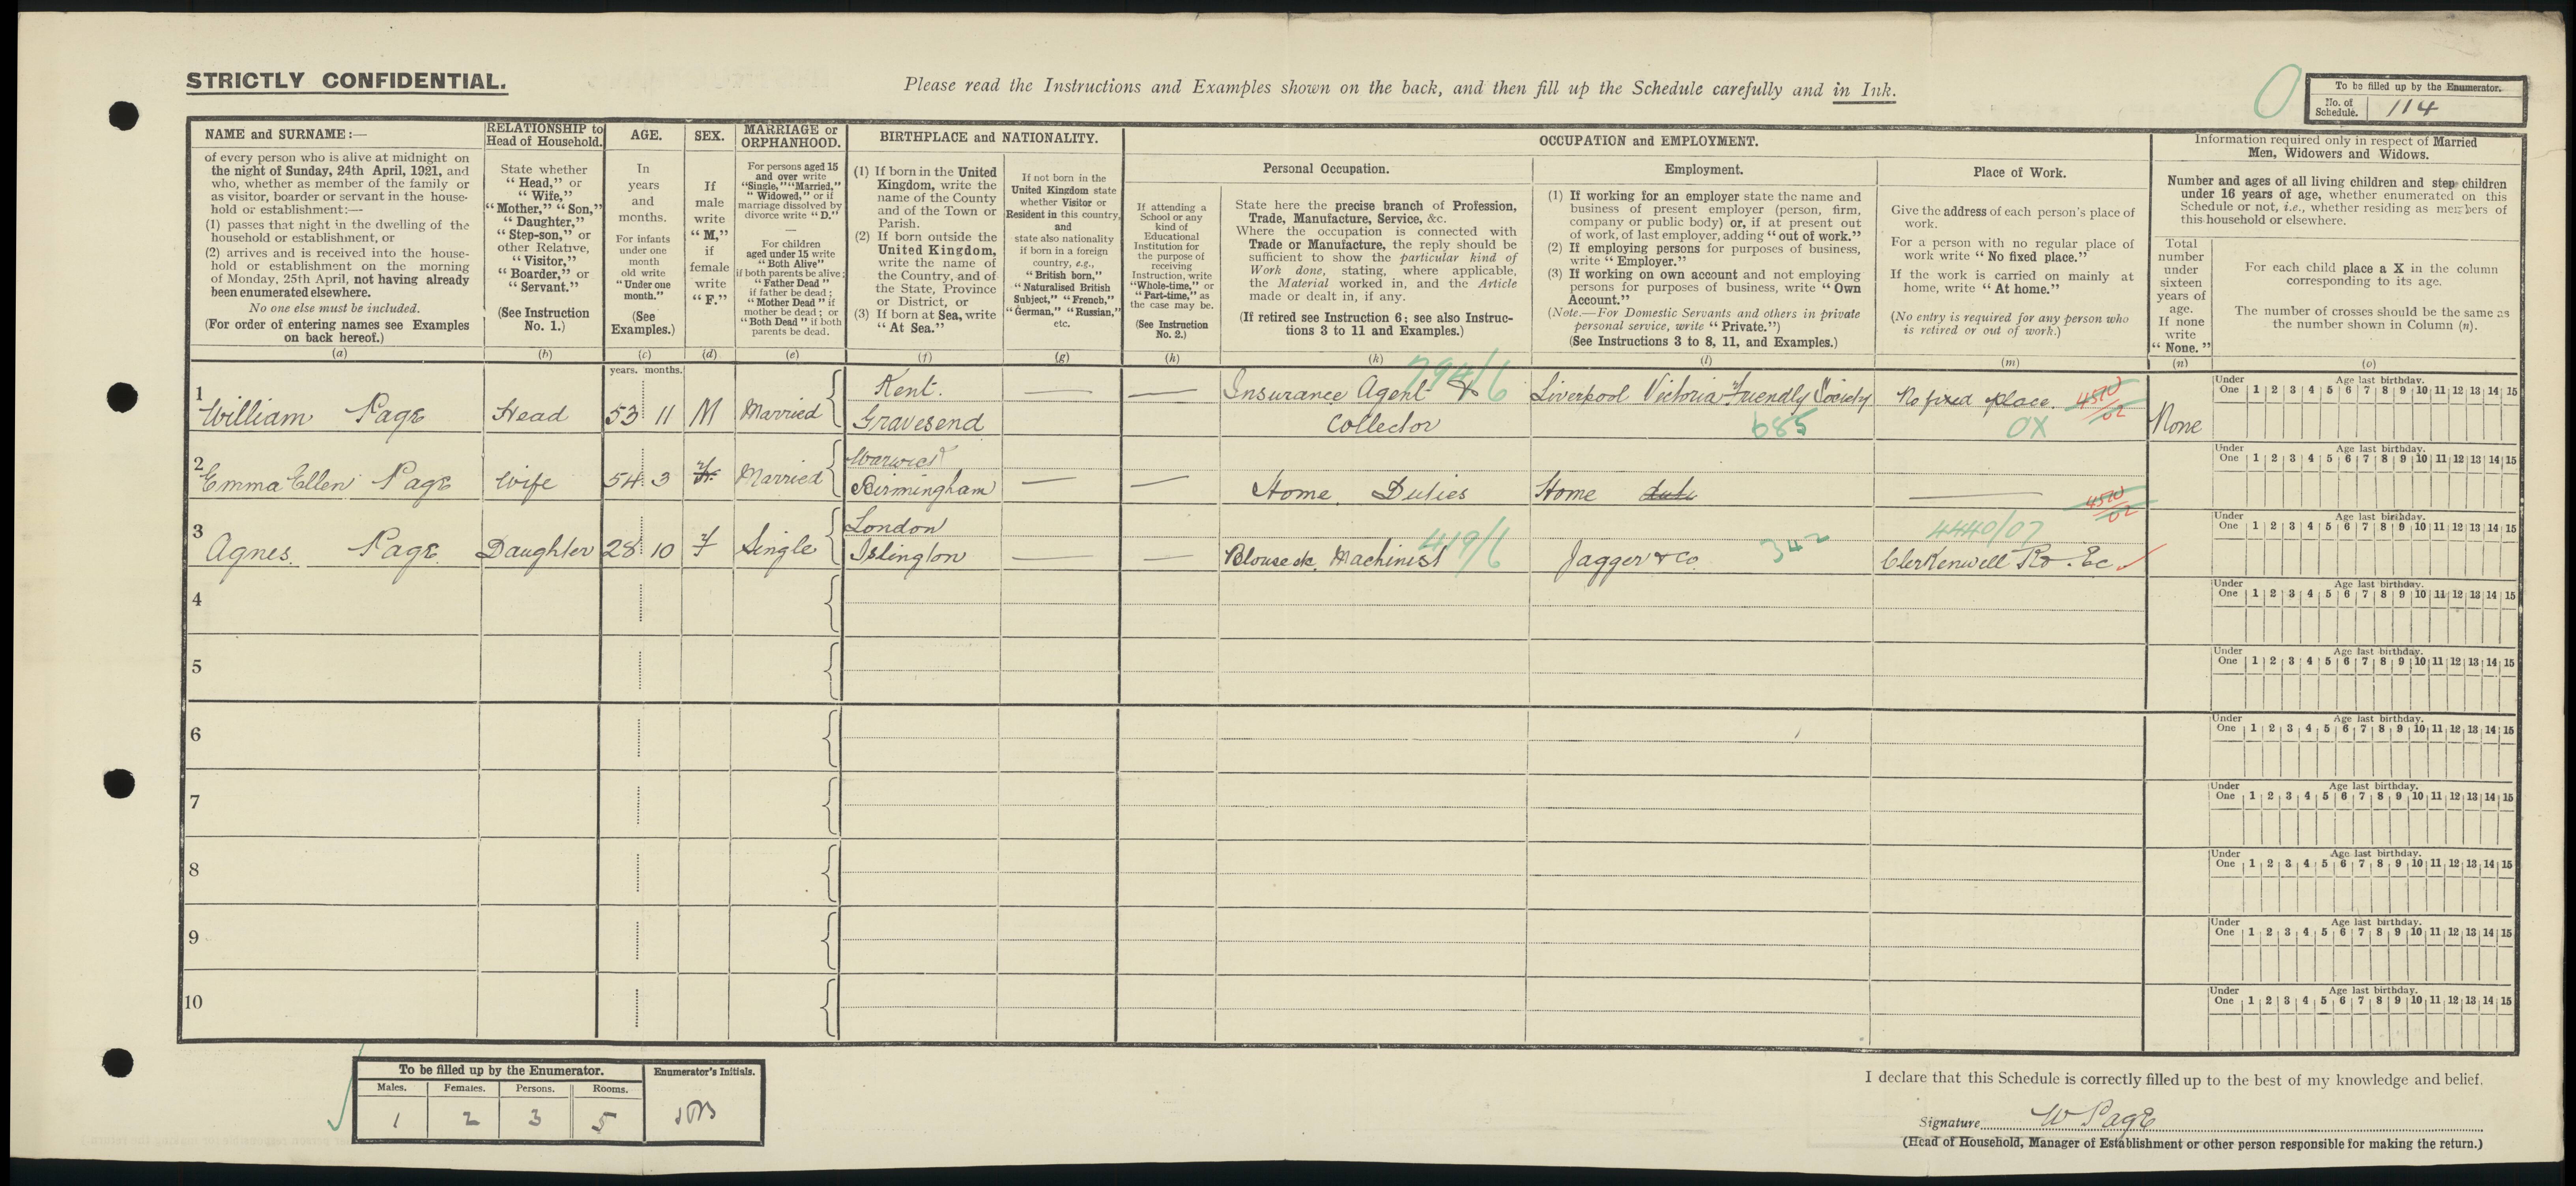 STRICTLY CONFIDENTIAL.
Please read the Instructions and Examples shown on the back, and then fill up the Schedule carefully and in Ink.
To be filled up by the Enumerator.
No. of Schedule. 114
NAME and SURNAME :—
of every person who is alive at midnight on
the night of Sunday, 24th April, 1921, and
who, whether as member of the family or
as visitor, boarder or servant in the house-
hold or establishment :—
(1) passes that night in the dwelling of the
household or establishment, or
(2) arrives and is received into the house-
hold or establishment on the morning
of Monday, 25th April, not having already
been enumerated elsewhere.
No one else must be included.
(For order of entering names see Examples
on back hereof.)
(a)
RELATIONSHIP to
Head of Household.
State whether
“Head,” or
“Wife,”
“Mother,” “Son,”
“Daughter,”
“Step-son,” or
other Relative,
“Visitor,”
“Boarder,” or
“Servant.”
(See Instruction
No. 1.)
(b)
AGE.
In
years
and
months.
For infants
under one
month
old write
“Under one
month.”
(See
Examples.)
(c)
SEX.
If
male
write
“M,”
if
female
write
“F.”
(d)
MARRIAGE or
ORPHANHOOD.
For persons aged 15
and over write
“Single,” “Married,”
“Widowed,” or if
marriage dissolved by
divorce write “D.”
—
For children
aged under 15 write
“Both Alive”
if both parents be alive ;
“Father Dead”
if father be dead ;
“Mother Dead” if
mother be dead ; or
“Both Dead” if both
parents be dead.
(e)
BIRTHPLACE and NATIONALITY.
(1) If born in the United
Kingdom, write the
name of the County
and of the Town or
Parish.
(2) If born outside the
United Kingdom,
write the name of
the Country, and of
the State, Province
or District, or
(3) If born at Sea, write
“At Sea.”
(f)
If not born in the
United Kingdom state
whether Visitor or
Resident in this country,
and
state also nationality
if born in a foreign
country, e.g.,
“British born,”
“Naturalised British
Subject,” “French,”
“German,” “Russian,”
etc.
(g)
OCCUPATION AND EMPLOYMENT.
If attending a
School or any
kind of
Educational
Institution for
the purpose of
receiving
Instruction, write
“Whole-time,” or
“Part-time,” as
the case may be.
(See Instruction
No. 2.)
(h)
Personal Occupation.
State here the precise branch of Profession,
Trade, Manufacture, Service, &c.
Where the occupation is connected with
Trade or Manufacture, the reply should be
sufficient to show the particular kind of
Work done, stating, where applicable,
the Material worked in, and the Article
made or dealt in, if any.
(If retired see Instruction 6 ; see also Instruc-
tions 3 to 11 and Examples.)
(k)
Employment.
(1) If working for an employer state the name and
business of present employer (person, firm,
company or public body) or, if at present out
of work, of last employer, adding “out of work.”
(2) If employing persons for purposes of business,
write “Employer.”
(3) If working on own account and not employing
persons for purposes of business, write “Own
Account.”
(Note.—For Domestic Servants and others in private
personal service, write “Private.”)
(See Instructions 3 to 8, 11, and Examples.)
(l)
Place of Work.
Give the address of each person's place of
work.
For a person with no regular place of
work write “No fixed place.”
If the work is carried on mainly at
home, write “At home.”
(No entry is required for any person who
is retired or out of work.)
(m)
Information required only in respect of Married
Men, Widowers and Widows.
Number and ages of all living children and step children
under 16 years of age, whether enumerated on this
Schedule or not, i.e., whether residing as members of
this household or elsewhere.
Total
number
under
sixteen
years of
age.
If none
write
“None.”
(n)
For each child place a X in the column
corresponding to its age.
The number of crosses should be the same as
the number shown in Column (n).
(o)
years. months.
1 William Page Head 53 11 M Married Kent. Gravesend — — Insurance Agent & Collector Liverpool Victoria Friendly Society No fixed place. None
794/6 685 0X
2 Emma Ellen Page Wife 54 3 F Married Warwick Birmingham — — Home Duties Home —
3 Agnes Page Daughter 28 10 F Single London Islington — — Machinist Jagger & Co Clerkenwell Rd. Ec
419/6 342 4440/07
4
5
6
7
8
9
10
Under One Age last birthday. 1 2 3 4 5 6 7 8 9 10 11 12 13 14 15
Under One Age last birthday. 1 2 3 4 5 6 7 8 9 10 11 12 13 14 15
Under One Age last birthday. 1 2 3 4 5 6 7 8 9 10 11 12 13 14 15
Under One Age last birthday. 1 2 3 4 5 6 7 8 9 10 11 12 13 14 15
Under One Age last birthday. 1 2 3 4 5 6 7 8 9 10 11 12 13 14 15
Under One Age last birthday. 1 2 3 4 5 6 7 8 9 10 11 12 13 14 15
Under One Age last birthday. 1 2 3 4 5 6 7 8 9 10 11 12 13 14 15
Under One Age last birthday. 1 2 3 4 5 6 7 8 9 10 11 12 13 14 15
Under One Age last birthday. 1 2 3 4 5 6 7 8 9 10 11 12 13 14 15
Under One Age last birthday. 1 2 3 4 5 6 7 8 9 10 11 12 13 14 15
To be filled up by the Enumerator.
Enumerator's Initials.
Males. Females. Persons. Rooms.
1 2 3 5
I declare that this Schedule is correctly filled up to the best of my knowledge and belief.
Signature W Page
(Head of Household, Manager of Establishment or other person responsible for making the return.)